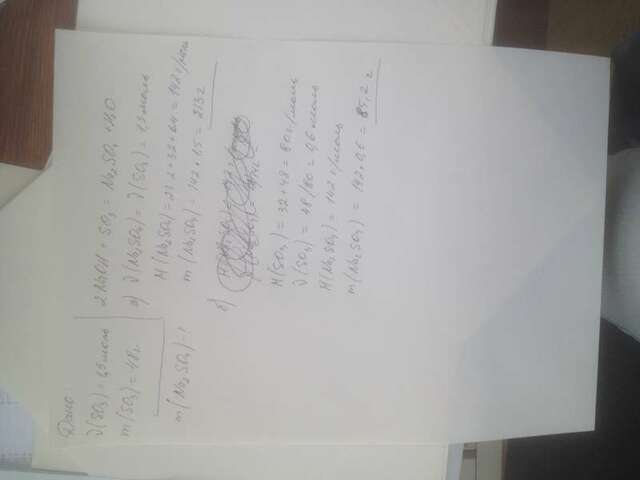 Дано:
ν(SO₃) = 1,5 моль
m(SO₃) = 48 г.
m(Na₂SO₄) - ?
2 NaOH + SO₃ = Na₂SO₄ + H₂O
а) ν(Na₂SO₄) = ν(SO₃) = 1,5 моль
M(Na₂SO₄) = 23·2 + 32 + 64 = 142 г/моль
m(Na₂SO₄) = 142 · 1,5 = 213 г
б)
M(SO₃) = 32 + 48 = 80 г/моль
ν(SO₃) = 48/80 = 0,6 моль
M(Na₂SO₄) = 142 г/моль
m(Na₂SO₄) = 142 · 0,6 = 85,2 г